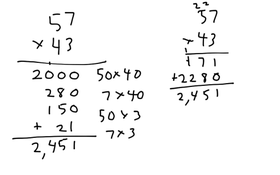 57
× 43
2000 50×40
280 7×40
150 50×3
+ 21 7×3
2,451
2 2
57
× 43
171
+2280
2,451